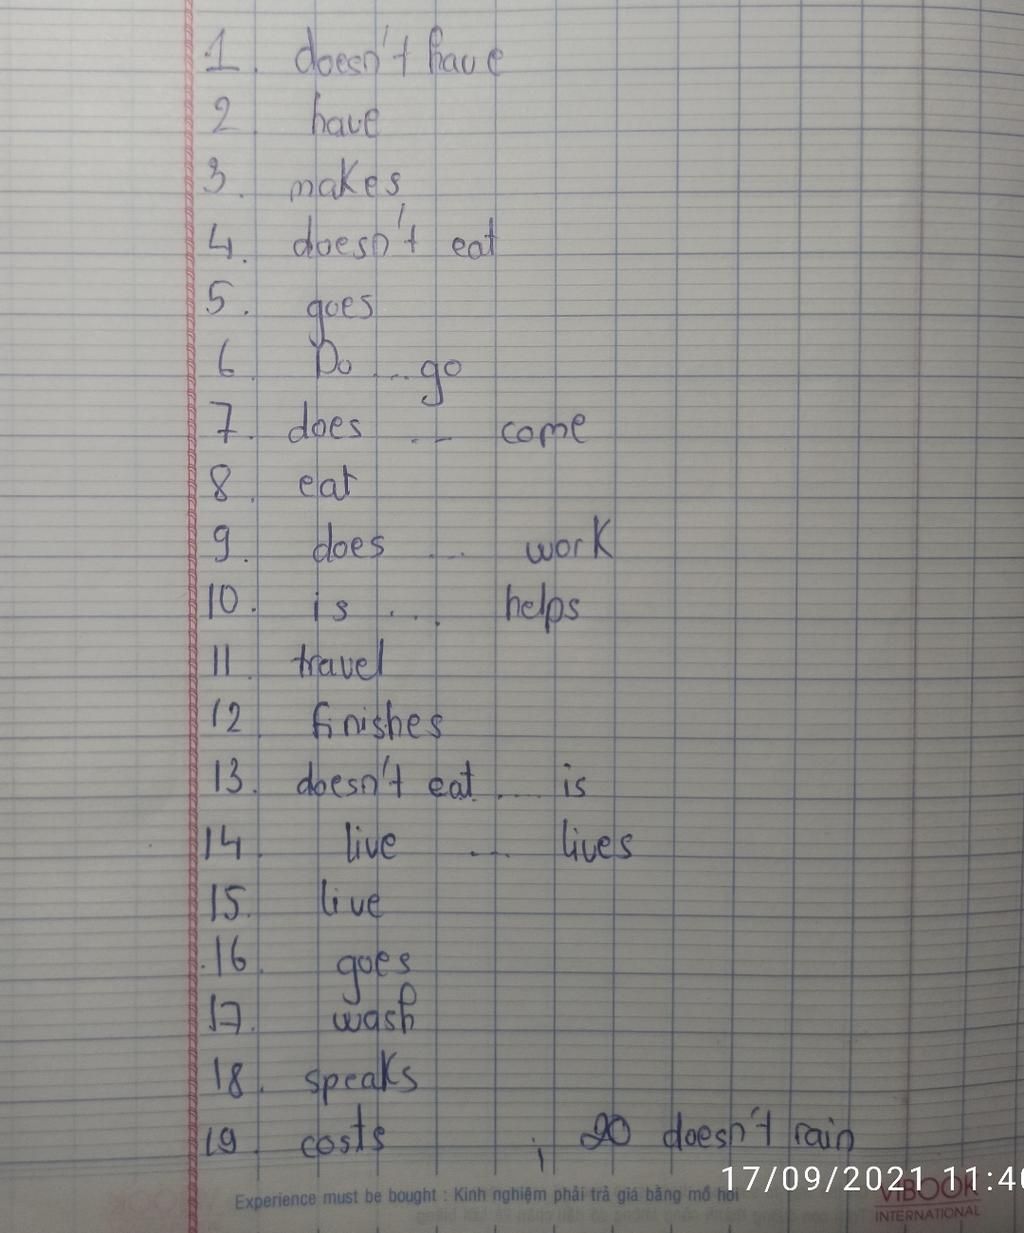 1. doesn't have
2 have
3. makes
4. doesn't eat
5. goes
6. Do ... go
7. does ... come
8. eat
9. does ... work
10. is ... helps
11 travel
12 finishes
13. doesn't eat ... is
14 live ... lives
15. live
16. goes
17. wash
18. speaks
19. costs ; 20 doesn't rain
17/09/2021 11:40
Experience must be bought : Kinh nghiệm phải trả giá bằng mồ hôi
VIBOOK
INTERNATIONAL